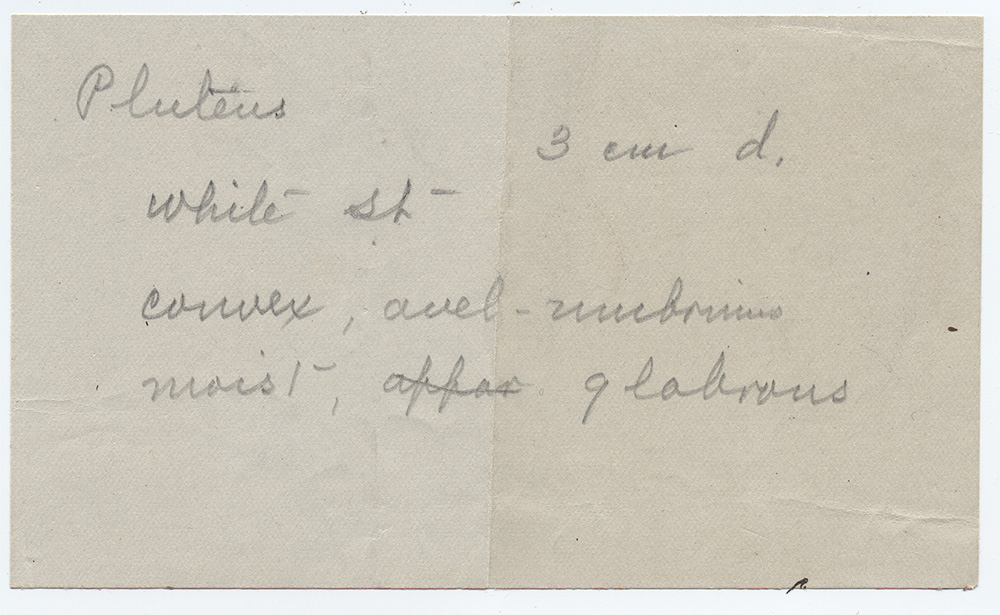 Pluteus
3 cm d.
white st
convex, avel-umbrinus
moist, appar glabrous